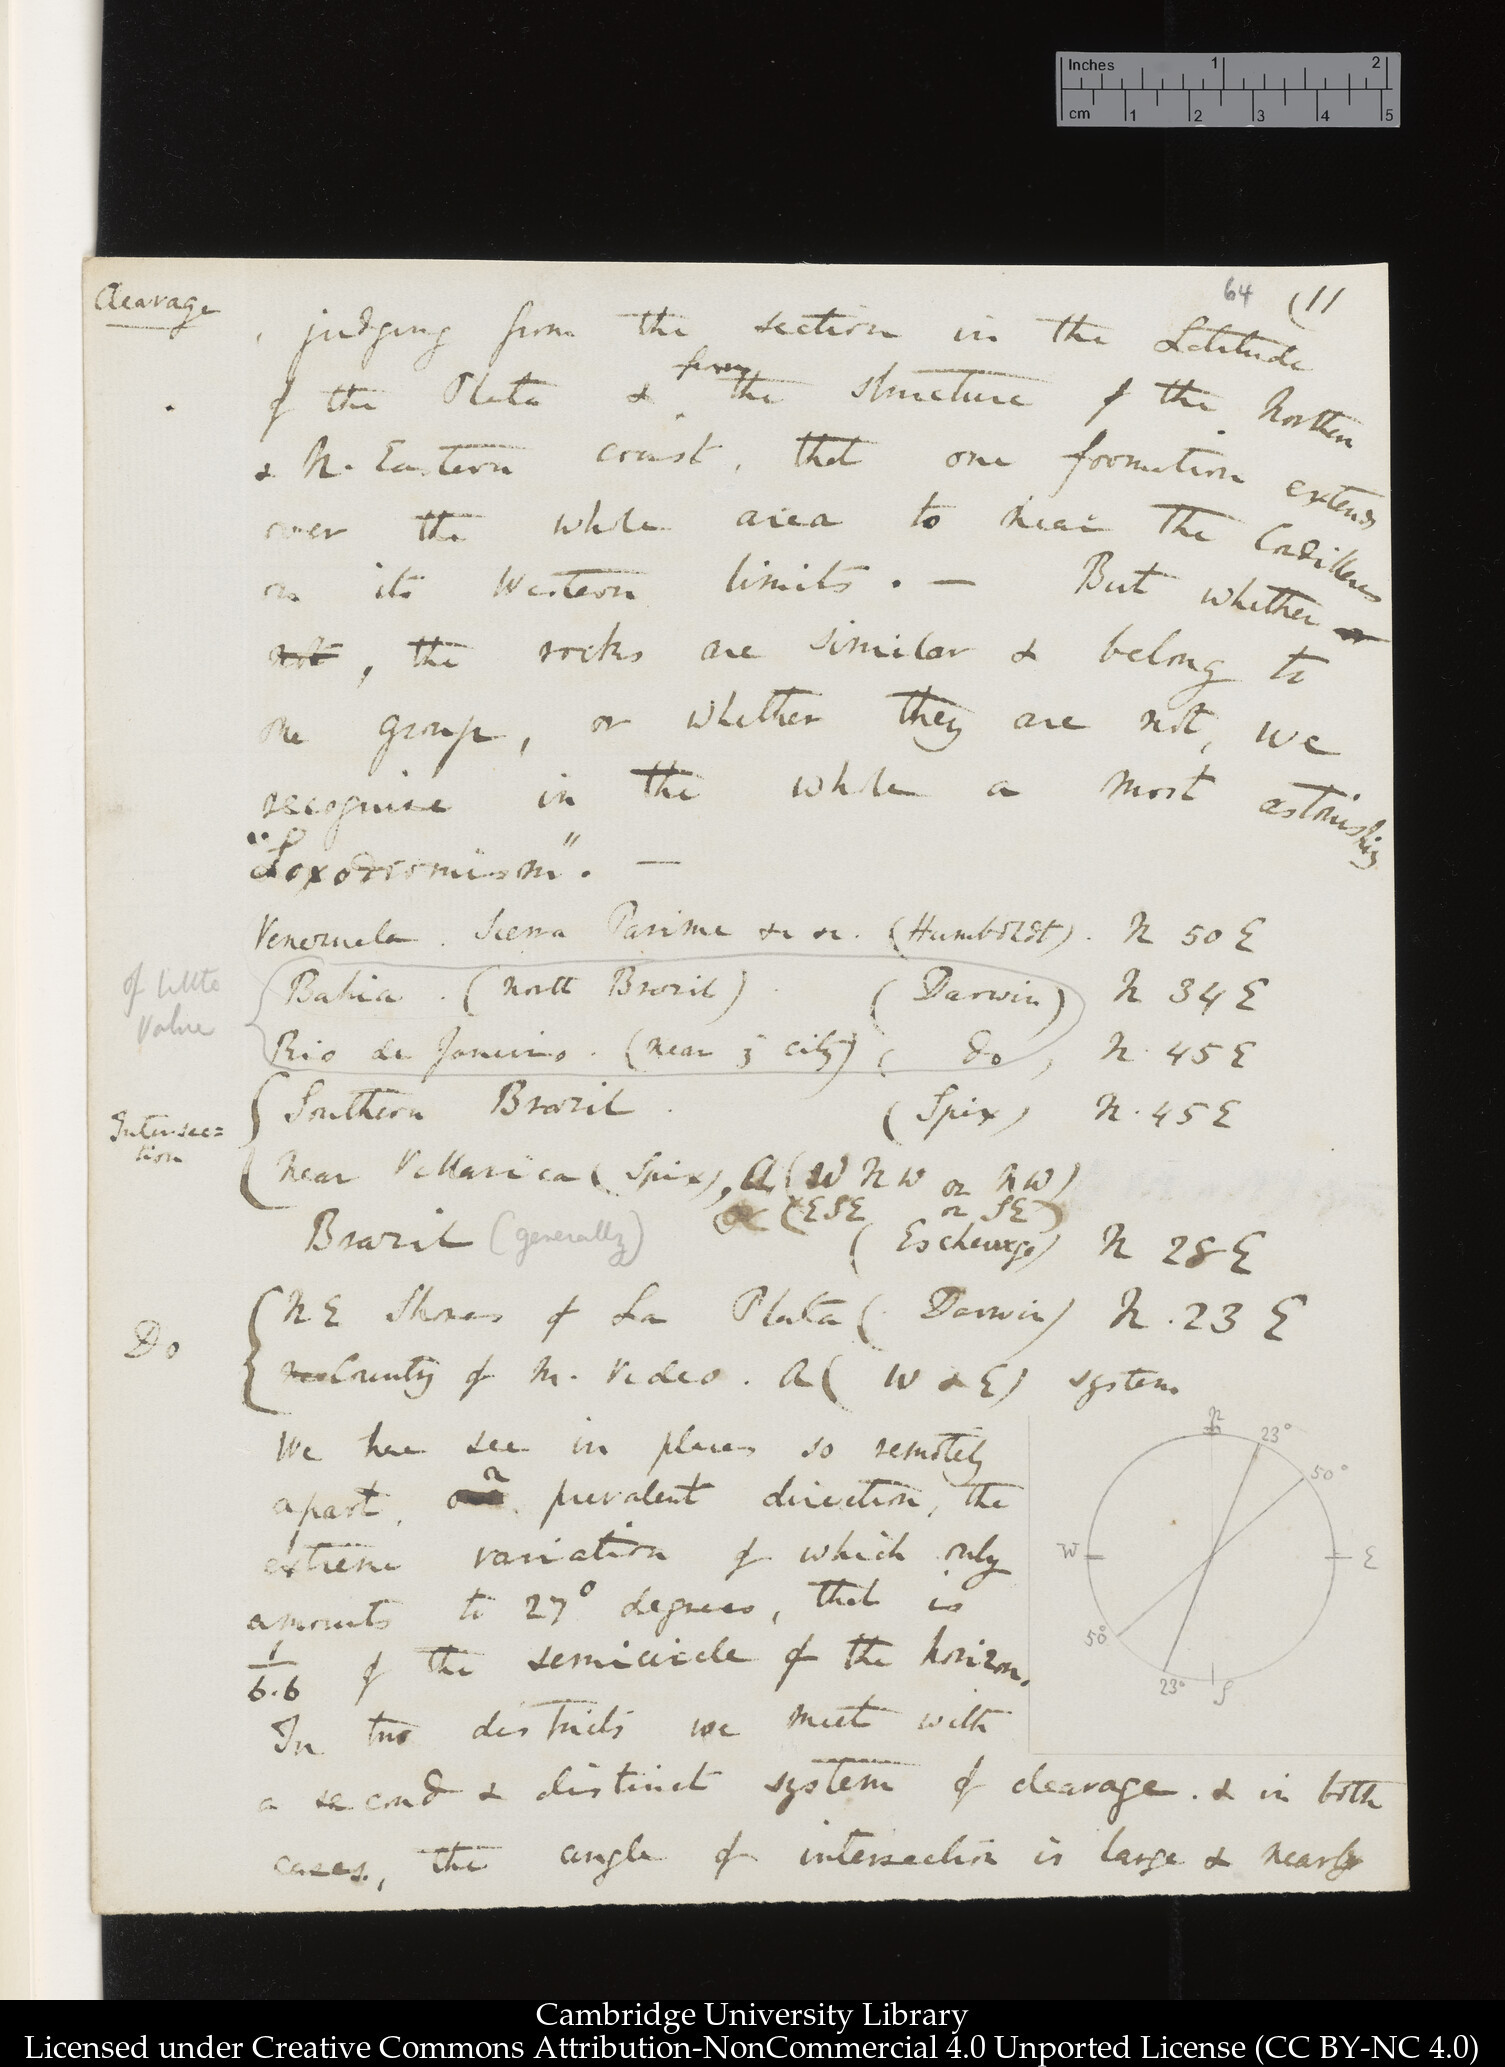 Inches 1 2
cm 1 2 3 4 5
64 (11
Cleavage
, judging from the section in the Latitude
of the Plata & from the structure of the Northern
& N. Eastern coast, that one formation extends
over the whole area to near the Cordilleras
on its Western limits. — But whether or
not, the rocks are similar & belong to
one group, or whether they are not, we
recognise in the whole a most astonishing
"Loxodromism". —
Venezuela. Sierra Parime &c &c. (Humboldt). N 50 E
of little value
Bahia. (North Brazil) (Darwin) N 34 E
Rio de Janeiro. (near city) (do) N. 45 E
Intersec=
tion
Southern Brazil. (Spix) N. 45 E
Near Villarica (Spix), A (W N W or N W)
(ESE or SE)
Brazil (generally) (Eschwege) N 28 E
Do
N E Shores of La Plata (Darwin) N. 23 E
County of M. Video. A (W & E) system
We here see in places so remotely
apart, a prevalent direction, the
extreme variation of which only
amounts to 27° degrees, that is
1/6.6 of the semicircle of the horizon.
N 23° 50°
W E
50° 23° S
In two districts we meet with
a second & distinct system of cleavage. & in both
cases, the angle of intersection is large & nearly
Cambridge University Library
Licensed under Creative Commons Attribution-NonCommercial 4.0 Unported License (CC BY-NC 4.0)